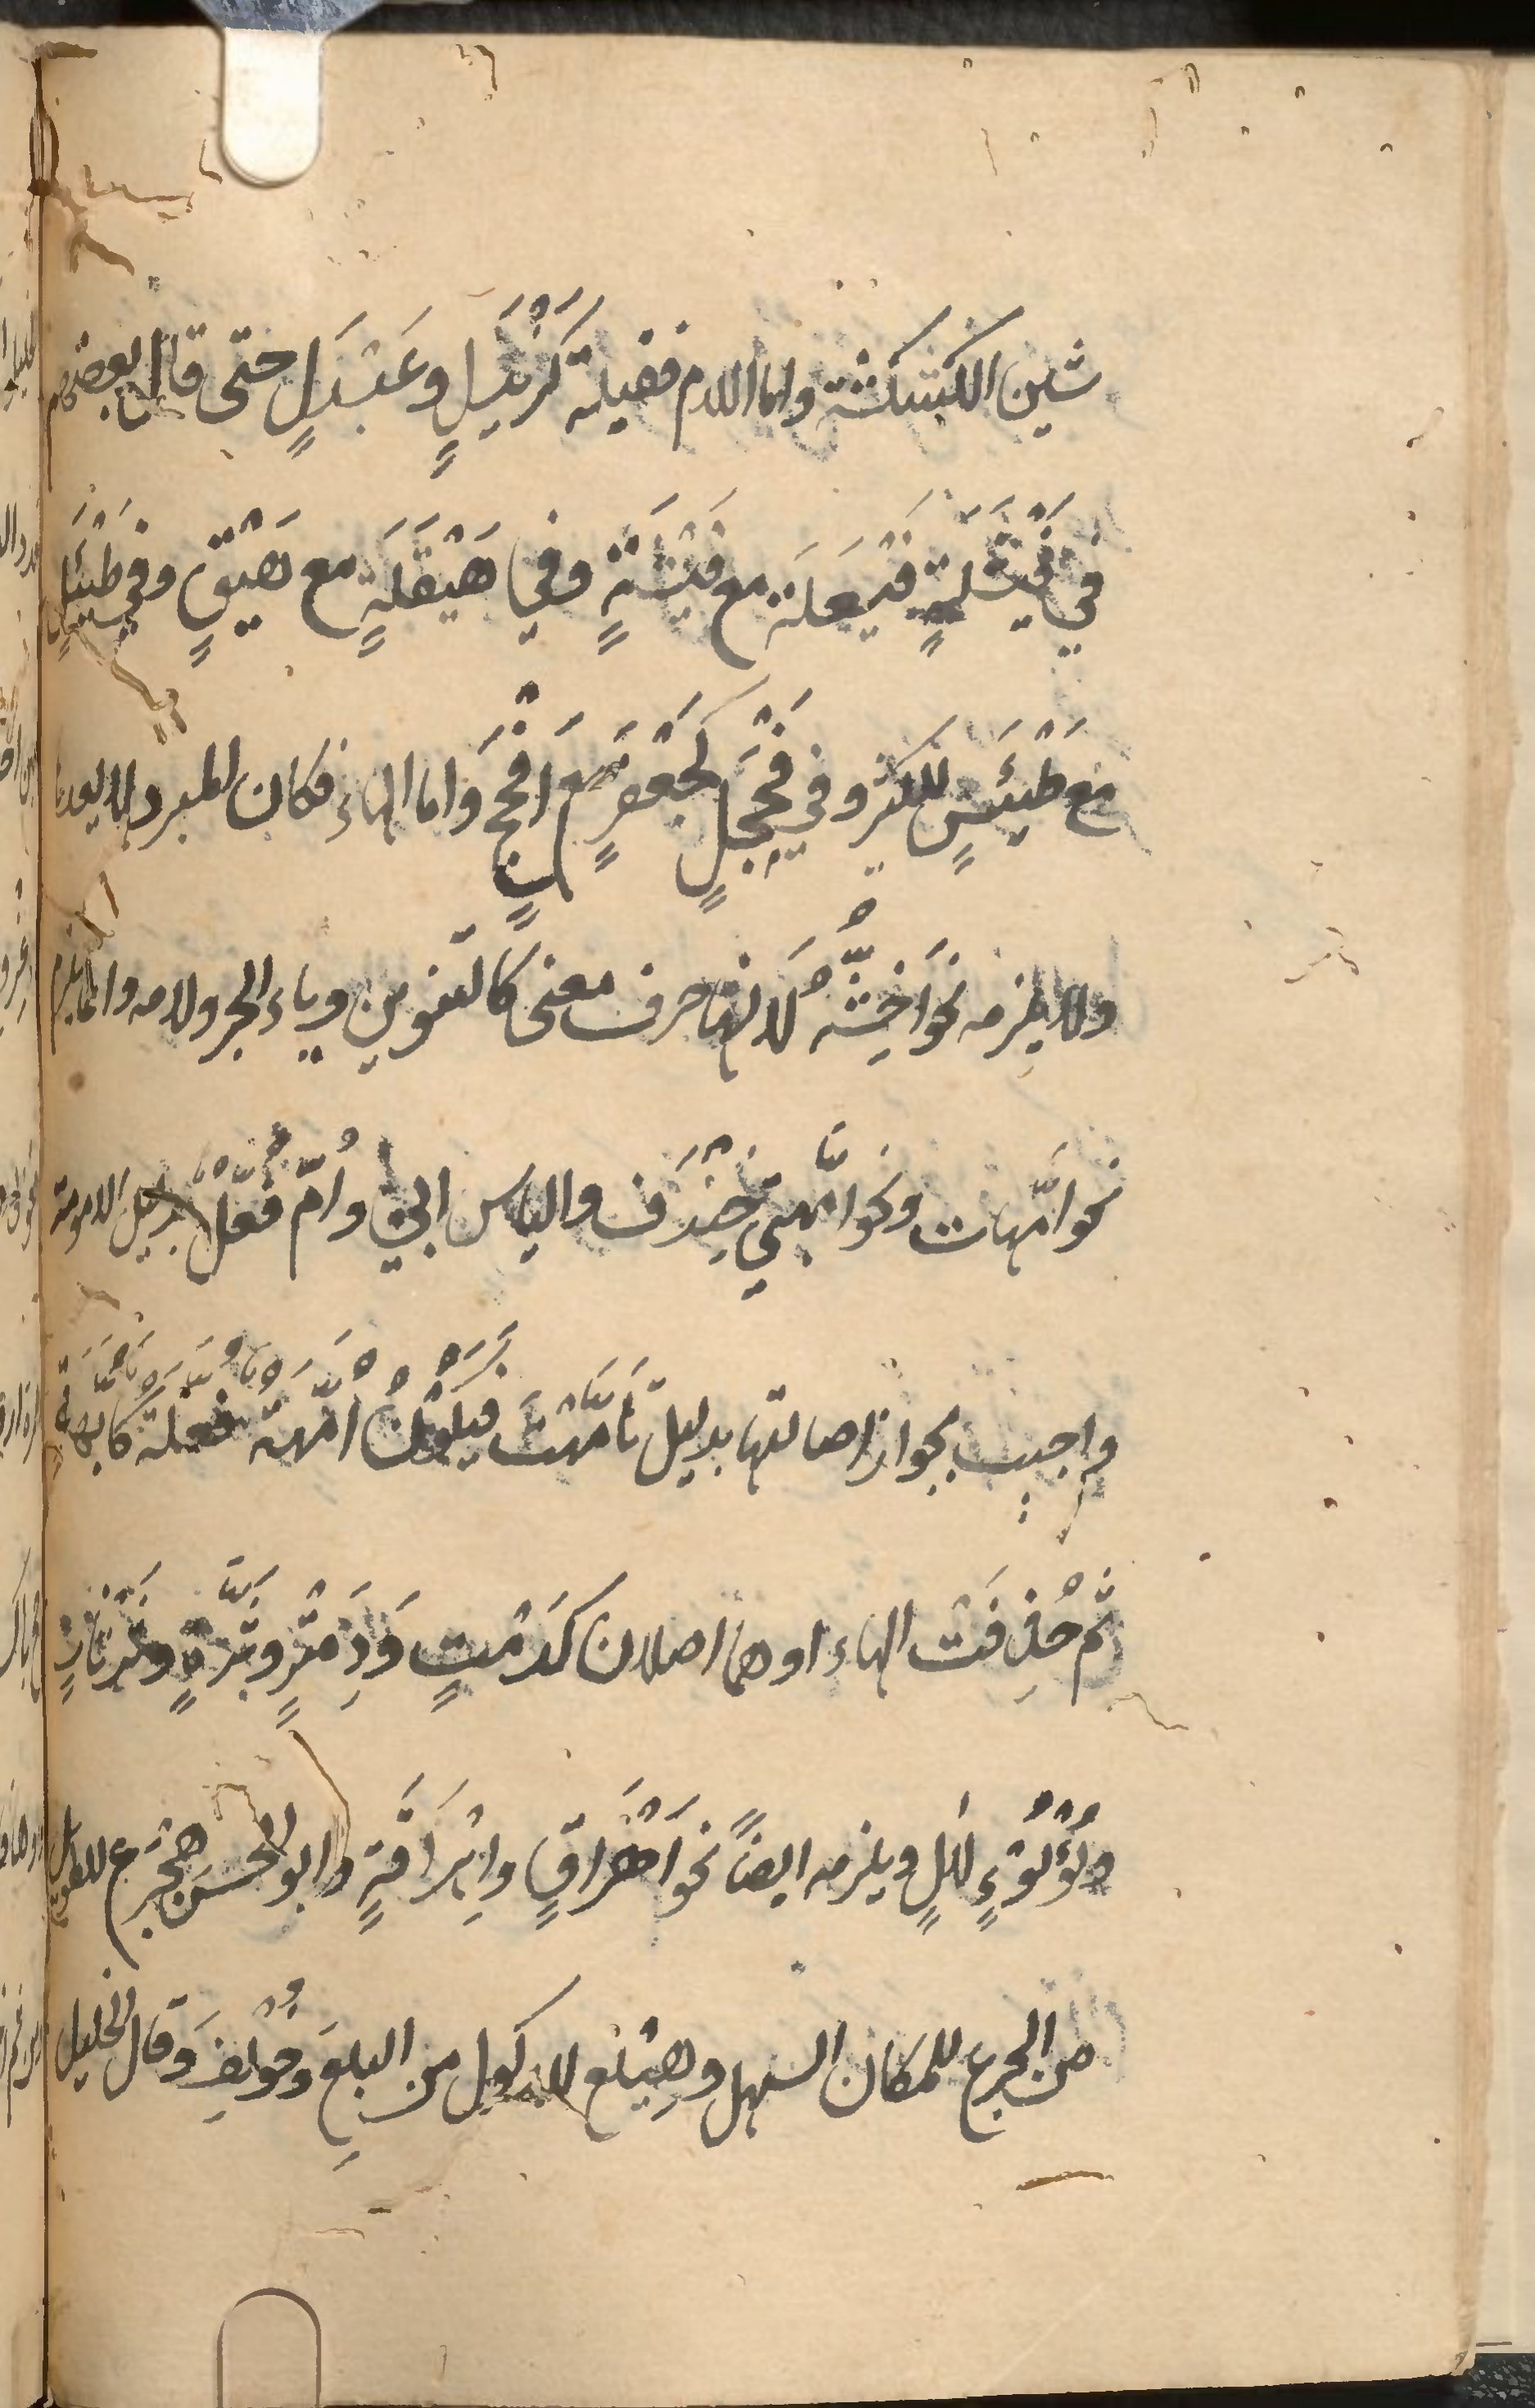 شين الكسكسة واما اللام فقليلة كَزَيْدَلٍ وعَبْدَلٍ حتى قال بعضهم
في فَيْشَلَةٍ فَيْعَلَة مع فَيْشَةٍ وفي هَيْقَلَةٍ مع هَيْقٍ وفي طَيْسَلٍ
مع طَيْسٍ للكثير وفي فَحْجَلٍ كجَعْفَرٍ مع افْحَجَ واما الهاء فكان المبرد لا يعدها
ولا يلزمه نحو اخْشَهْ لانها حرف معنى كالتنوين وباء الجر ولامه وانما يلزم
نحو امّهات ونحو امّهتي خِنْدَف والياس ابي واُمّ فُعْلٌ بدليل الامومة
واجيب بجواز اصالتها بدليل تَاَمَّهَتْ فيكون اُمَّهَة فُعَّلَة كاُبَّهَةٍ
ثم حُذِفَت الهاء او هما اصلان كدَمْثٍ وَدِمَثْرٍ وثَرَّةٍ وثَرْثَارٍ
ولُؤْلُؤٍ لَألٍ ويلزمه ايضاً نحو اَهْرَاقَ واِهْرَاقَةٍ وابو الحسن هِجْرَع للطويل
من الجرع للمكان السهل وهِبْلَع للاكول من البلع وخُولِفَ وقال الخليل